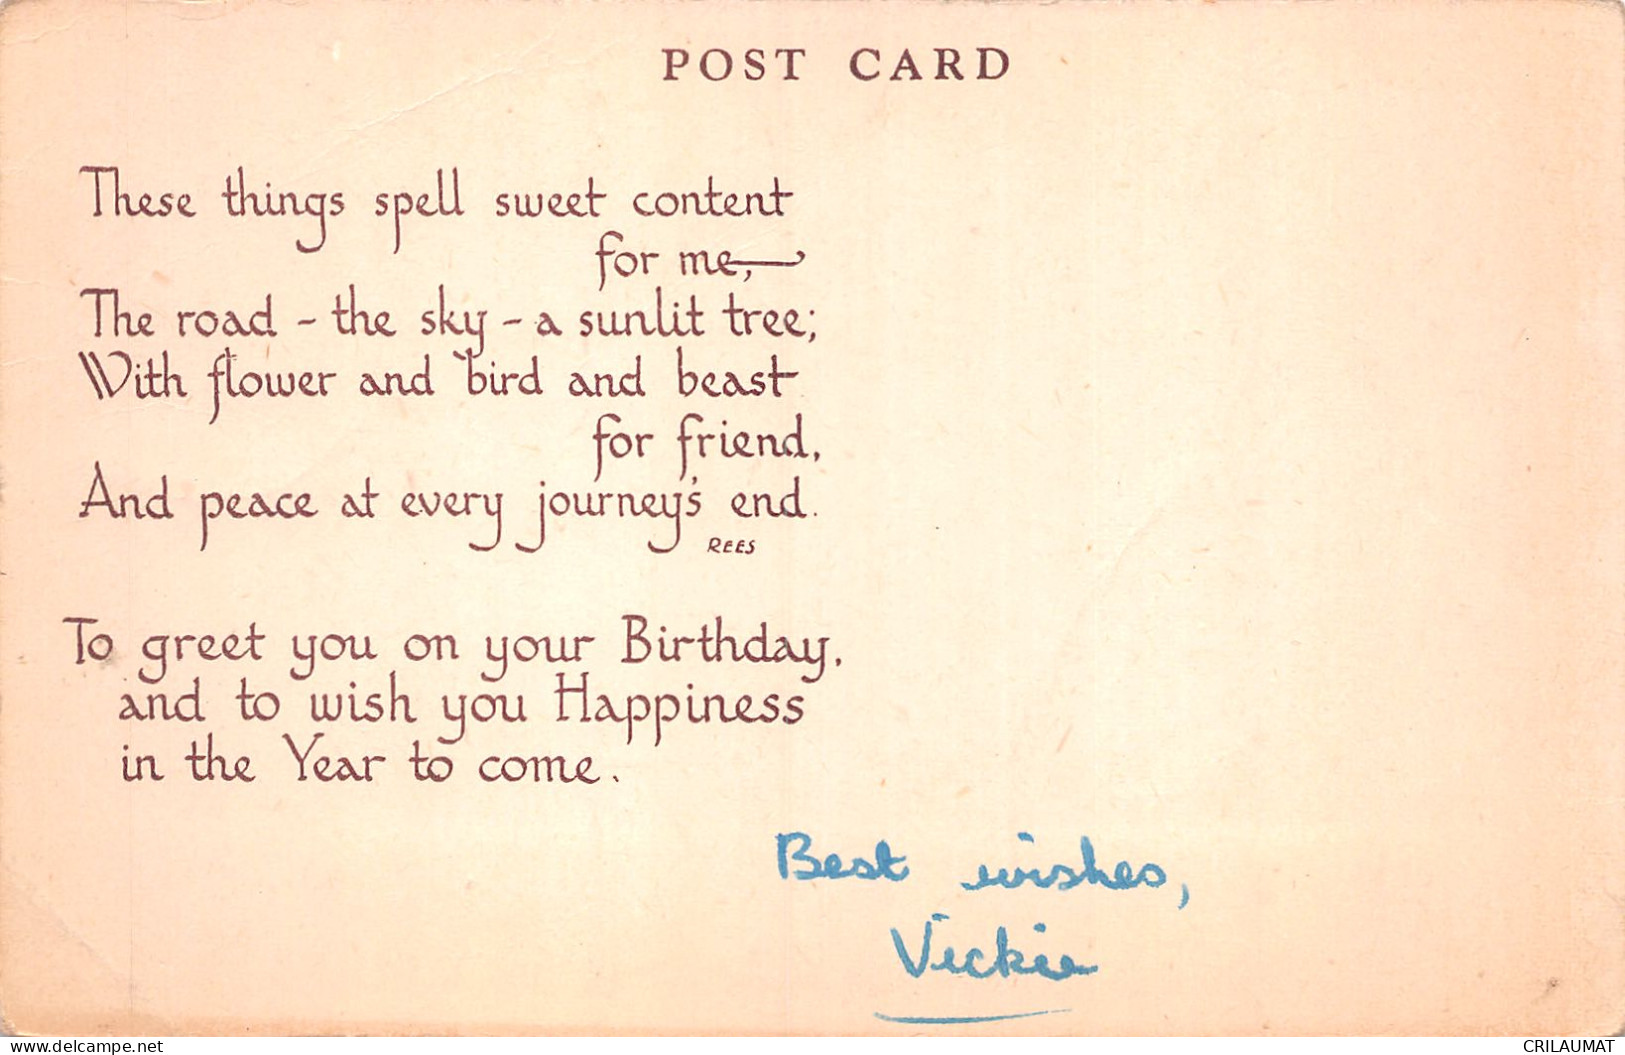 POST CARD
These things spell sweet content
for me,—
The road - the sky - a sunlit tree;
With flower and bird and beast
for friend,
And peace at every journey's end.
REES
To greet you on your Birthday,
and to wish you Happiness
in the Year to come.
Best wishes,
Vickie
www.delcampe.net
CRILAUMAT